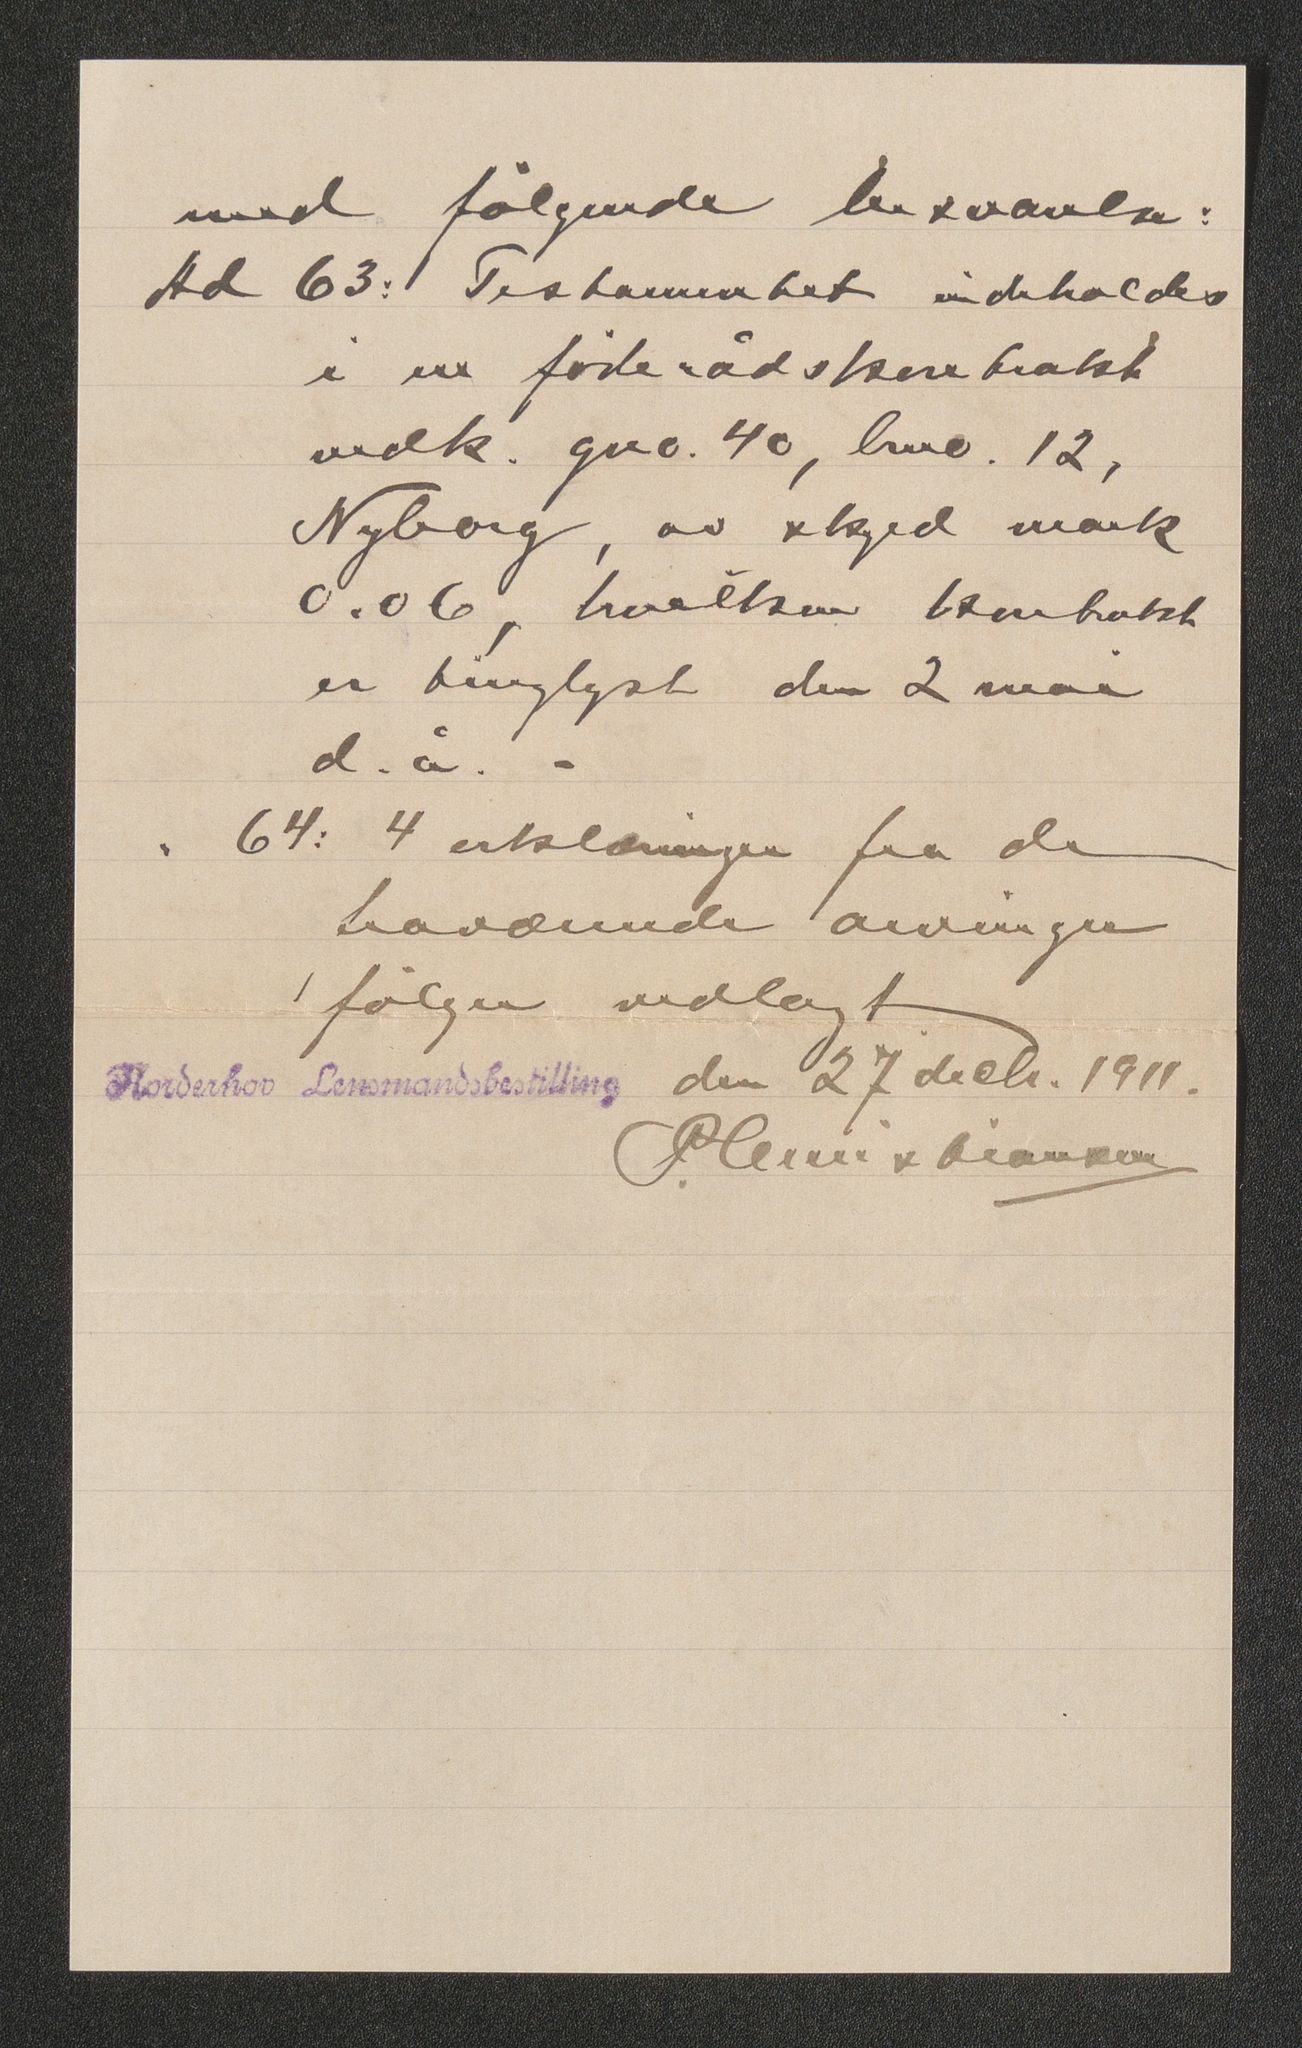 med følgende besvarelse:
Ad 63: Testamentet indeholdes
i en föderådskontrakt
vedk. gno. 40, bno. 12,
Nyborg, av skyld mark
0.06, hvilken kontrakt
er tinglyst den 2 mai
d. å. -
" 64: 4 erklæringer fra de
traværende arvinger
følger vedlagt
Norderhov Lensmandsbestilling den 27 decb. 1911.
P. Christiansen